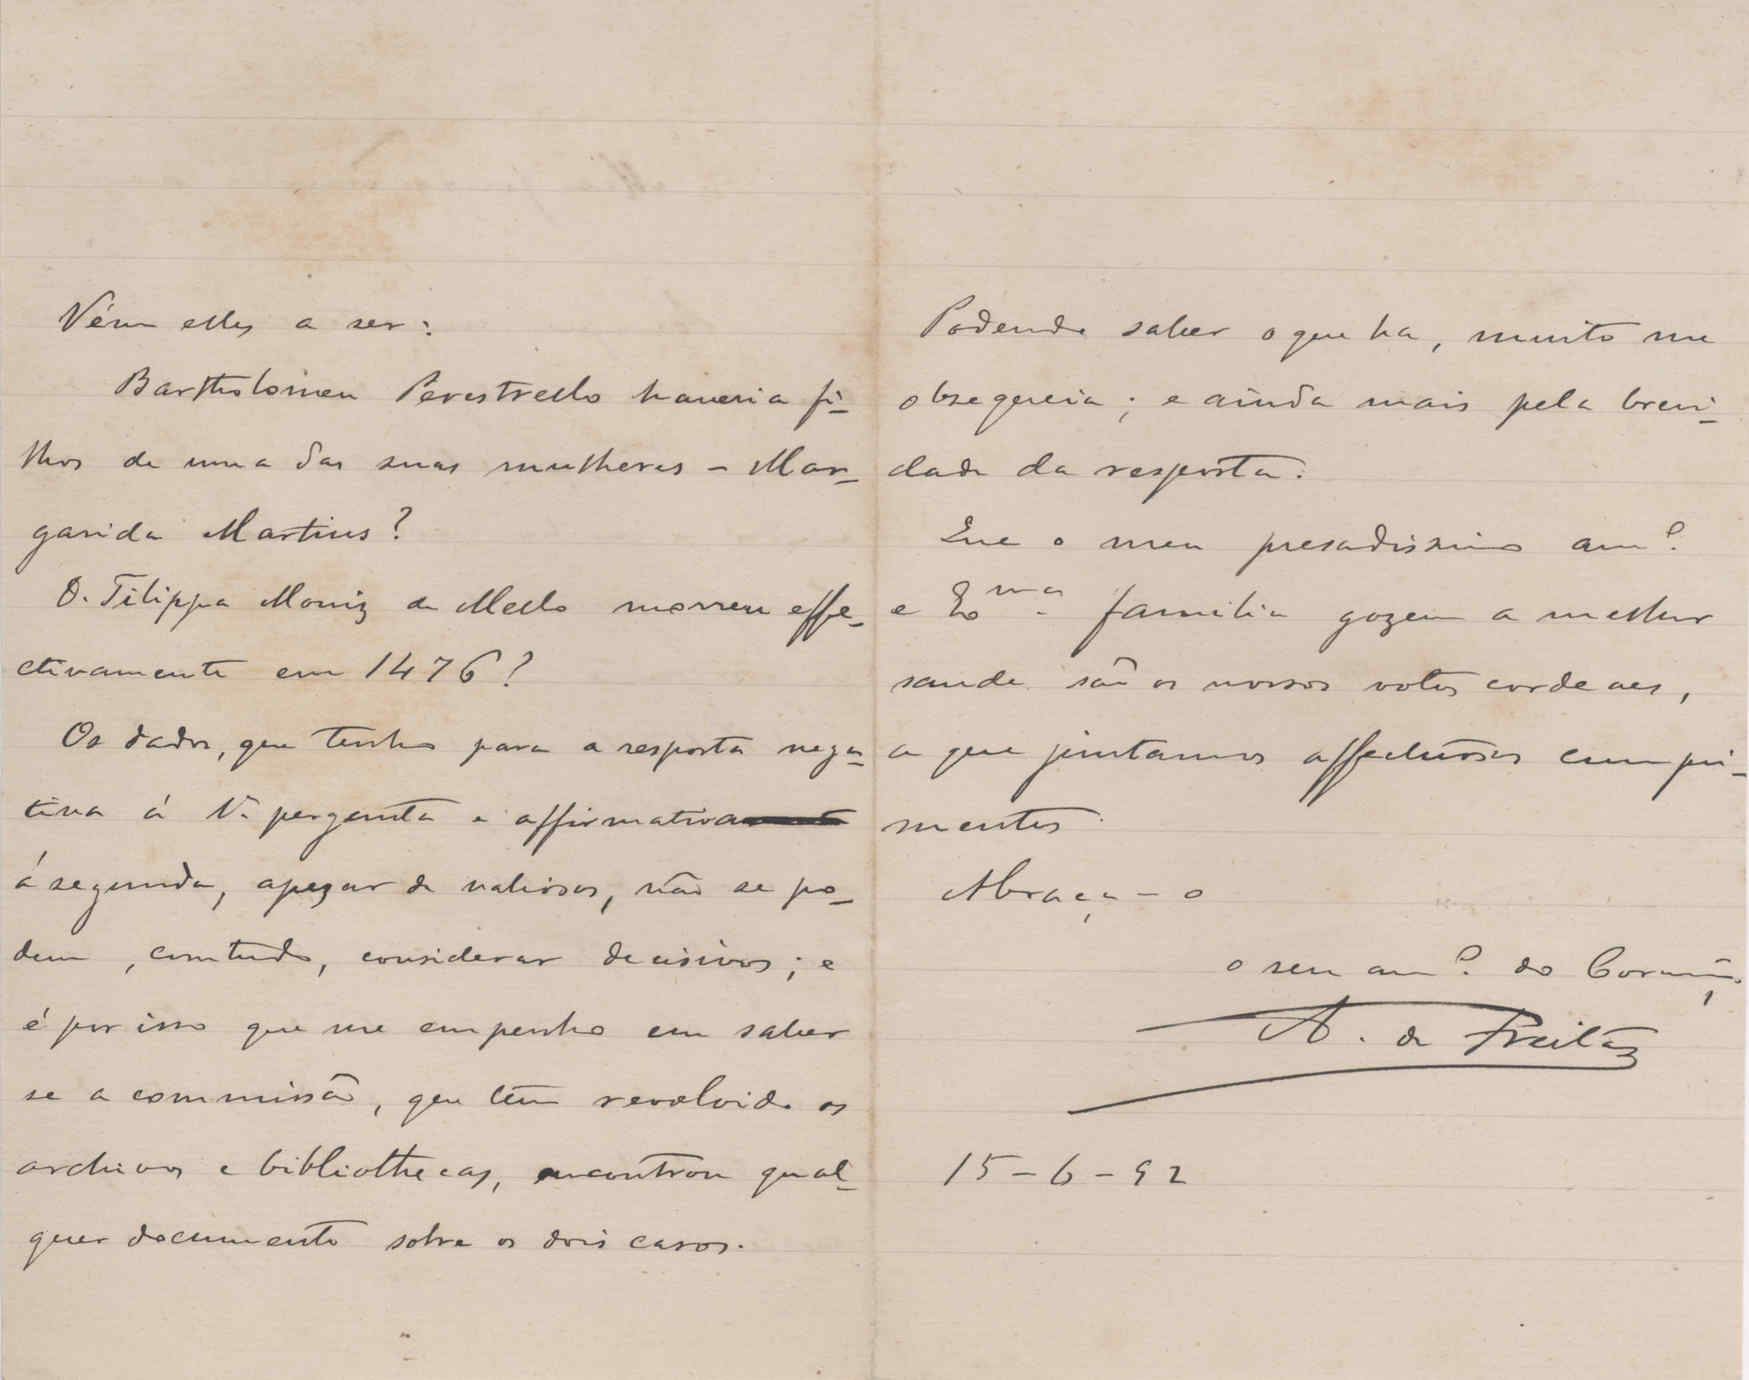 Vém elles a ser:
Bartholomeu Perestrello haveria fi-
lhos de uma das suas mulheres – Mar-
garida Martins?
D. Filippa Moniz de Mello morreu effe-
ctivamente em 1476?
Os dados, que tenho para a resposta nega-
tiva á 1ª pergunta e affirmativa
á segunda, apezar de valiosos, não se po-
dem, comtudo, considerar decisivos; e
é por isso que me empenho em saber
se a commissão, que tem revolvido os
archivos e bibliothecas, encontrou qual-
quer documento sobre os dois casos.
Podendo saber o que ha, muito me
obsequeia; e ainda mais pela brevi-
dade da resposta.
Que o meu presadissimo amº.
e Exma. familia gozem a melhor
saude são os nossos votos cordeaes,
a que juntamos affectuosos cumpri-
mentos.
Abraça-o
o seu amº. do Coração,
A. de Freitas
15-6-92